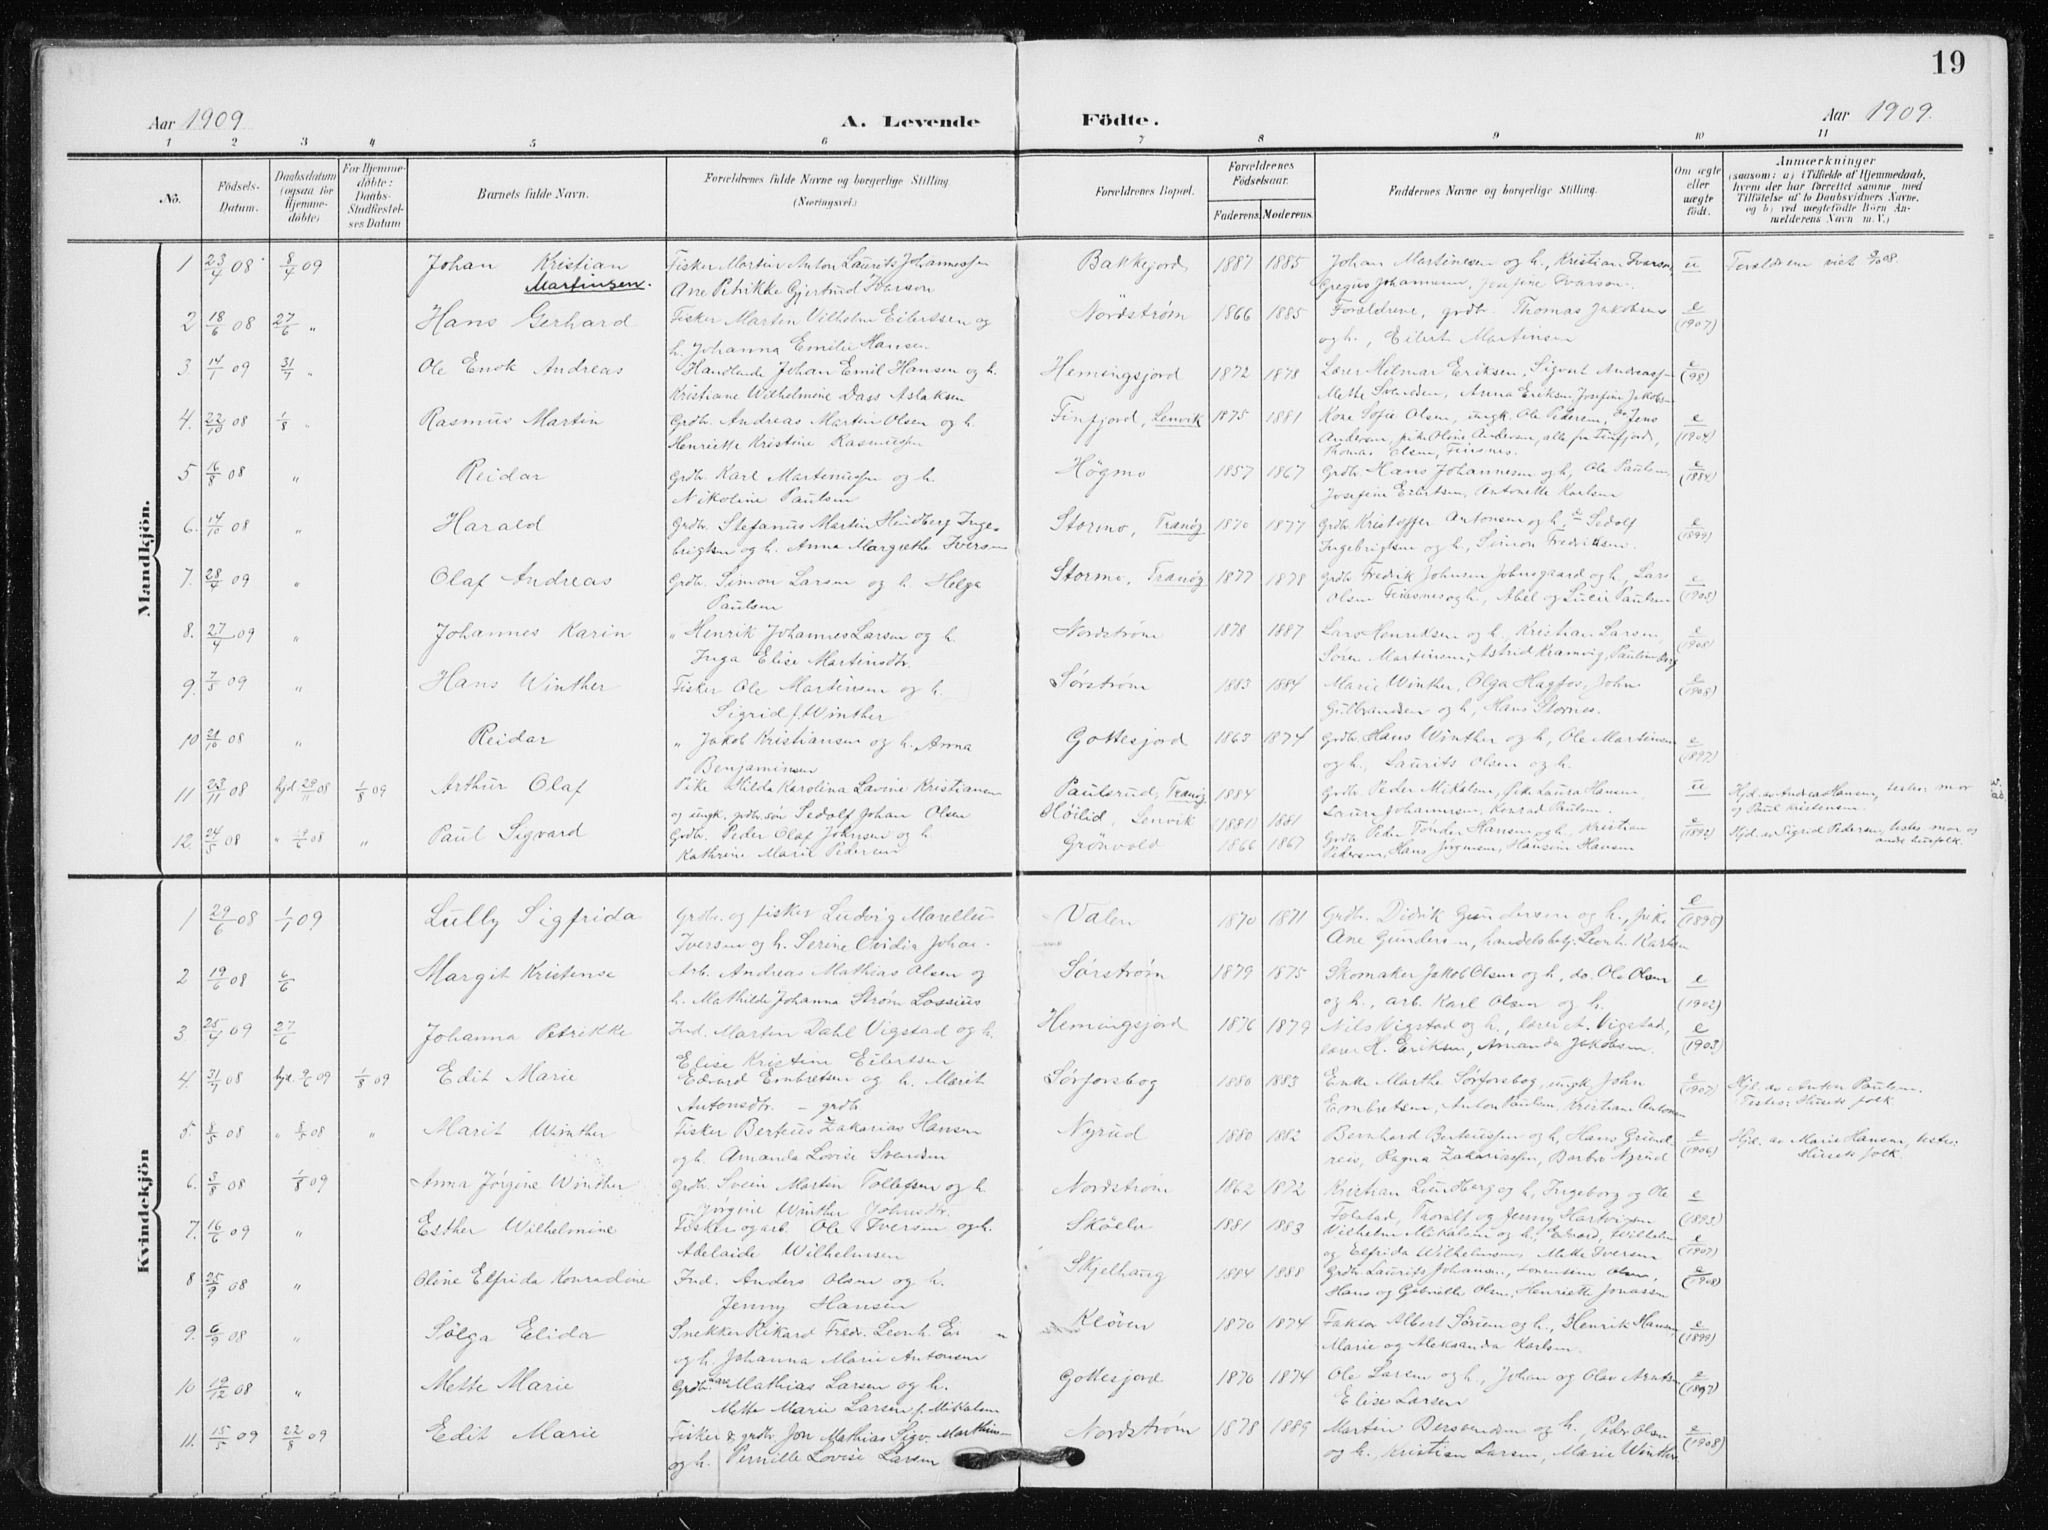 19
Aar 1909
A. Levende Födte.
Aar 1909.
1 2 3 4 5 6 7 8 9 10 11
No.
Födsels-Datum.
Daabsdatum (ogsaa for Hjemmedöbte)
For Hjemmedöbte: Daabs-Stadfæstelses Datum
Barnets fulde Navn.
Forældrenes fulde Navne og borgerlige Stilling (Næringsvei.)
Forældrenes Bopæl.
Forældrenes Födselsaar.
Faderens. Moderens.
Faddernes Navne og borgerlige Stilling.
Om ægte eller uægte födt.
Anmærkninger
(saasom: a) i Tilfælde af Hjemmedaab, hvem der har forrettet samme med Tilföielse af to Daabsvidners Navne, og b) ved uægtefödte Börn Anmelderens Navn m. V.)
Mandkjön.
1 23/4 08 8/4 09 Johan Kristian Martinsen. Fisker Martin Anton Laurits Johannessen Bakkejord 1887 1885 Johan Martinesen og h., Kristian Ivarson, u Forældrene viet
Ane Petrikke Gjertrud Ivarson Gregus Johannesen, Josefine Ivarson.
2 18/6 08 27/6 „ Hans Gerhard Fisker Martin Vilhelm Eilertsen og Nordström 1866 1885 Forældrene, grdb. Thomas Jakobsen e (1907)
h. Johanna Emilie Hansen og h., Eilert Martinsen
3. 14/1 09 31/7 „ Ole Enok Andreas Handlende Johan Emil Hansen og h. Hemingsjord 1872 1878 Lærer Hilmar Eriksen, Sigvart Andreassen e (98)
Kristiane Wilhelmine Dass Aslaksen Mette Svendsen, Anna Eriksen, Josefine Jakobsen
4. 22/10 08 1/8 „ Rasmus Martin Grdb. Andreas Martin Olsen og h. Finfjord, Lenvik 1875 1881 Kone Sofie Olsen, ungk. Ole Pedersen, do Jens e (1904)
Henriette Kristine Rasmussen Andersen, pike Oline Andersen, alle fra Finfjord,
Thomas Olsen, Finsnes.
5 16/8 08 „ Reidar Grdb. Karl Martenussen og h. Högmo 1857 1867 Grdb. Hans Johannesen og h., Ole Paulsen, e (1884)
Nikoline Paulsen Josefine Eilertsen, Antonette Karlsen
6. 14/10 08 „ Harald Grdb. Stefanus Martin Hindberg Inge- Stormo, Tranöy 1870 1877 Grdb. Kristoffer Antonsen og h., Sedolf e (1899)
brigtsen og h. Anna Margrethe Iversen Ingebrigtsen og h., Simon Fredriksen.
7. 28/4 09 „ Olaf Andreas Grdb. Simon Larsen og h. Helga Stormo, Tranöy 1877 1878 Grdb. Fredrik Johnsen Johnsgaard og h., Lars e (1905)
Paulsen Olsen Finsnes og h., Abel og Lucie Paulsen
8. 27/4 09 „ Johannes Karin „ Henrik Johannes Larsen og h. Nordström 1878 1887 Lars Henriksen og h., Kristian Larsen, e (1908)
Inga Elise Martinsdtr. Sören Martinsen, Astrid Kramvig, Pauline Berg
9. 7/5 09 „ Hans Winther Fisker Ole Martinsen og h. Sørstrøm 1883 1884 Marie Winther, Olga Hagfos, John e (1908)
Sigrid f. Winther Gulbrandsen og h., Hans Stornes.
10 21/10 08 „ Reidar „ Jakob Kristiansen og h. Anna Gottesjord 1863 1874 Grdb. Hans Winther og h., Ole Martinsen e (1897)
Benjaminsen og h., Laurits Olsen og h.
11 23/11 08 hjd. 29/11 08 1/8 09 Arthur Olaf Pike Hilda Karolina Lavine Kristiansen Paulsrud, Tranöy 1884 Grdb. Peder Mikalsen, pike Laura Hansen u Hjd. av Andreas Hansen, testes: mor
og ungk. grdb.søn Sedolf Johan Olsen Höilid, Lenvik (1881) 1881 Laura Johannesen, Konrad Paulsen. og Paul Kristensen.
12. 24/5 08 „ 19/6 08 „ Paul Sigvard Grdb. Peder Olaf Johnsen og h. Grönvold 1866 1867 Grdb. Peder Tönder Hansen og h., Kristian e (1892) Hjd. av Sigrid Pedersen, testes mor og
Kathrine Marie Pedersen Pedersen, Hans Jörgensen, Hansine Hansen andre husfolk.
Kvindekjön
1 29/6 08 1/1 09 Lully Sigfrida Grdb. og fisker Ludvig Marelius Valen 1870 1871 Grdb. Didrik Gundersen og h., pike e (1895)
Iversen og h. Serine Ovidia Johan- Ane Gundersen, handelsbetj. Leonh. Karlsen
2 19/6 08 6/6 Margit Kristense Arb. Andreas Mathias Olsen og Sørstrøm 1879 1875 Skomaker Jakob Olsen og h., do. Ole Olsen e (1902)
h. Mathilde Johanna Strøm Lossius og h., arb. Karl Olsen og h.
3 25/4 09 27/6 Johanna Petrikke Ind. Martin Dahl Vigstad og h. Hemingsjord 1876 1879 Nils Vigstad og h., lærer A. Vigstad, e (1903)
Elise Kristine Eilertsen lærer H. Eriksen, Amanda Jakobsen.
4. 31/7 08 hjd. 9/6 09 1/8 09 Edit Marie Edvard Embretsen og h. Marit Sörforsbog 1880 1883 Enke Marthe Sörforsbog, ungk. John e (1907) Hjd. av Anton Paulsen.
Antonsdtr. – grdb. Embretsen, Anton Paulsen, Kristiane Antonsen Testes: Husets folk.
5. 8/5 08 „ 8/5 08 „ Marit Winther Fisker Berteus Zakarias Hansen Nyrud 1880 1882 Bernhard Berteussen og h., Hans Grund- e (1906) Hjd. av Marie Hansen, testes:
og h. Amanda Lovise Svendsen Ragna Zakariassen, Barbro Nyrud Husets folk.
6. 3/8 08 1/8 09 Anna Jörgine Winther Grdb. Svein Martin Tollefsen og h. Nordström 1862 1872 Kristian Lundberg og h., Ingeborg og Ole e (1893)
Jörgine Winther Johnsdtr. Folstad, Thoralf og Jenny Hartvigsen
7. 16/6 09 „ Esther Wilhelmine Fisker og arb. Ole Iversen og h. Sköelv 1881 1883 Vilhelm Mikalsen og h., Edvard, Wilhelm e (1907)
Adelaide Wilhelmsen og Elfrida Wilhelmsen, Mette Iversen
8 25/9 08 „ Oline Elfrida Konradine Ind. Anders Olsen og h. Skjelhaug 1884 1888 Grdb. Laurits Johansen, Lorentsine Olsen, e (1908)
Jenny Hansen Hans og Gabrielle Olsen, Henriette Jonassen
9. 6/9 08 „ Sölga Elida Snekker Rikard Fredr. Leonh. Kleven 1870 1874 Faktor Albert Sörensen og h., Henrik Hansen, e (1899)
og h. Johanna Marie Antonsen Marie og Aleksanda Karlsen.
10 19/12 08 „ Mette Marie Grdb. Lars Mathias Larsen og h. Gottesjord 1870 1874 Ole Larsen og h., Johan og Olav Arntsen e (1897)
Mette Marie Larsen f. Mikalsen Elise Larsen
11. 15/5 09 22/8 09 Edit Marie Fisker & grdb. Jon Mathias Sigv. Marthinsen Nordström 1878 1889 Martin Bersvendsen og h., Peder Olsen e (1908)
og h. Pernille Lovise Larsen og h., Kristian Larsen, Marie Winther